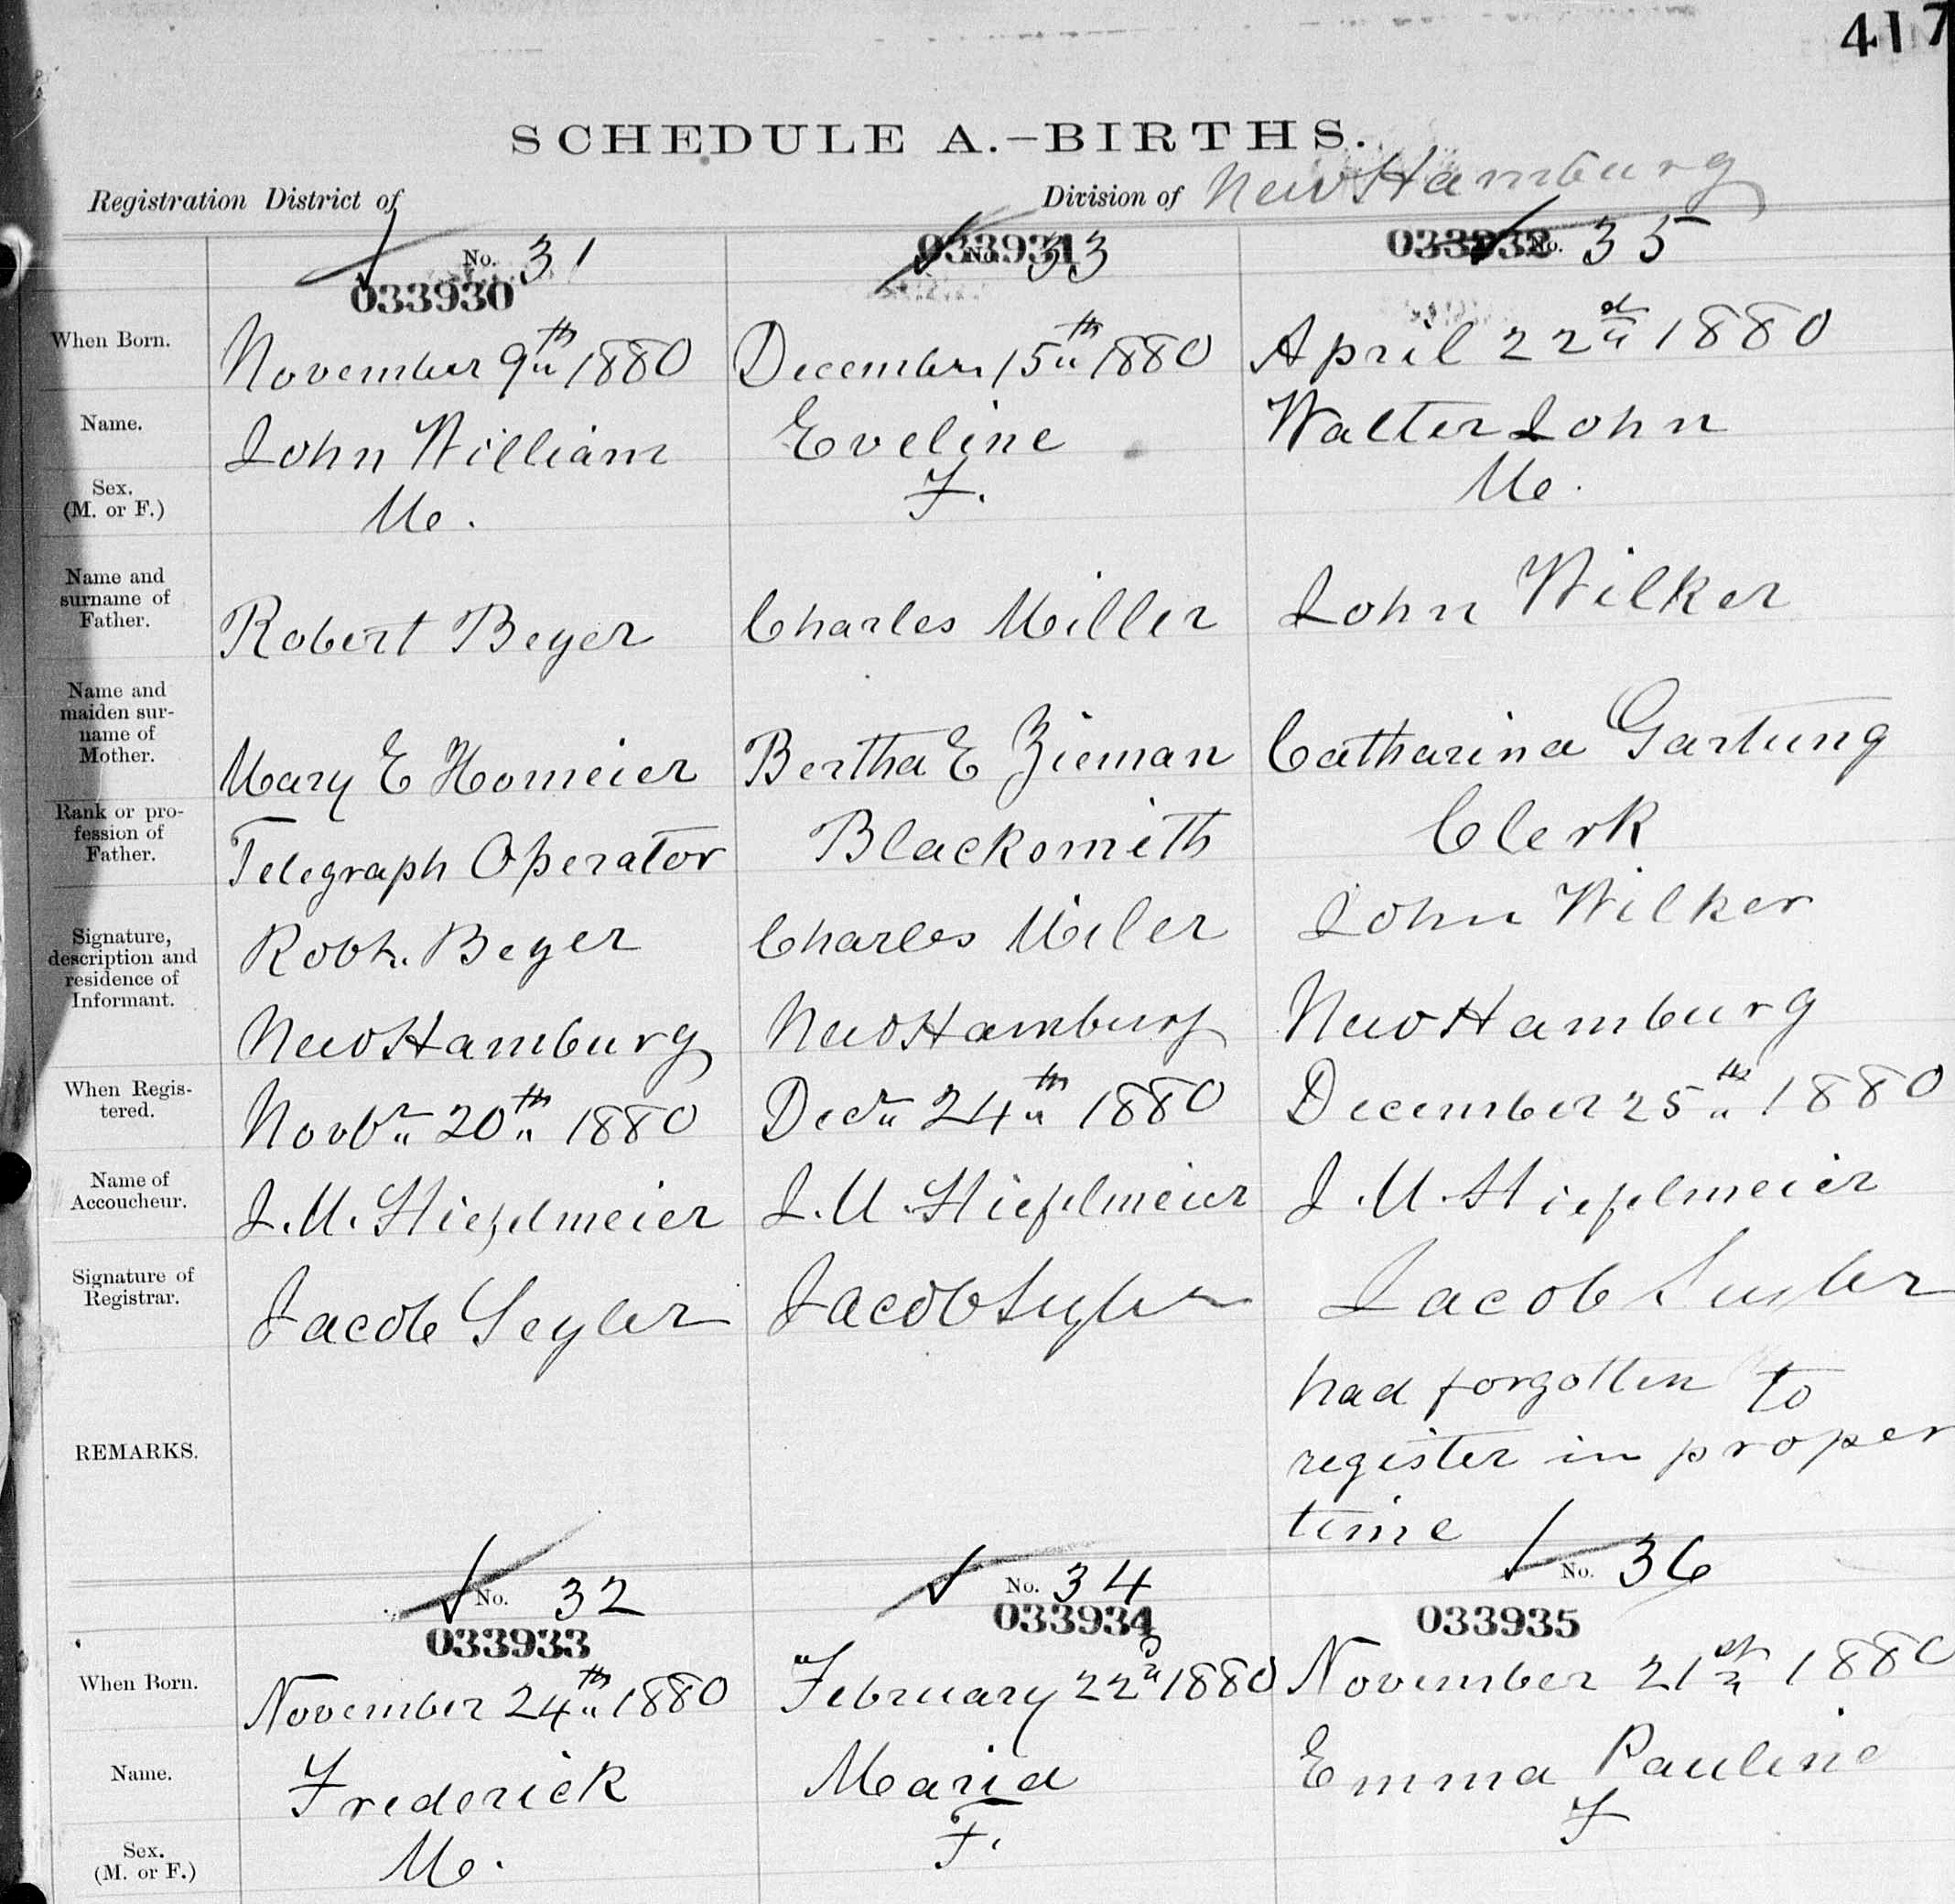 417
SCHEDULE A.–BIRTHS.
Registration District of
Division of New Hamburg
No. 31
033930
033931
No. 33
033932
No. 35
When Born.
November 9th 1880
December 15th 1880
April 22d 1880
Name.
John William
Eveline
Walter John
Sex.
(M. or F.)
M.
F.
M.
Name and
surname of
Father.
Robert Beyer
Charles Miller
John Wilker
Name and
maiden sur-
name of
Mother.
Mary E Homeier
Bertha E Zieman
Catharina Gartung
Rank or pro-
fession of
Father.
Telegraph Operator
Blacksmith
Clerk
Signature,
description and
residence of
Informant.
Robt. Beyer
Charles Miler
John Wilker
New Hamburg
New Hamburg
New Hamburg
When Regis-
tered.
Novbr 20th 1880
Decr 24th 1880
December 25th 1880
Name of
Accoucheur.
J. M. Stiefelmeier
J. M. Stiefelmeier
J. M. Stiefelmeier
Signature of
Registrar.
Jacob Seyler
Jacob Seyler
Jacob Seyler
REMARKS.
had forgotten to
register in proper
time
No. 32
033933
No. 34
033934
No. 36
033935
When Born.
November 24th 1880
February 22d 1880
November 21st 1880
Name.
Frederick
Maria
Emma Pauline
Sex.
(M. or F.)
M.
F.
F